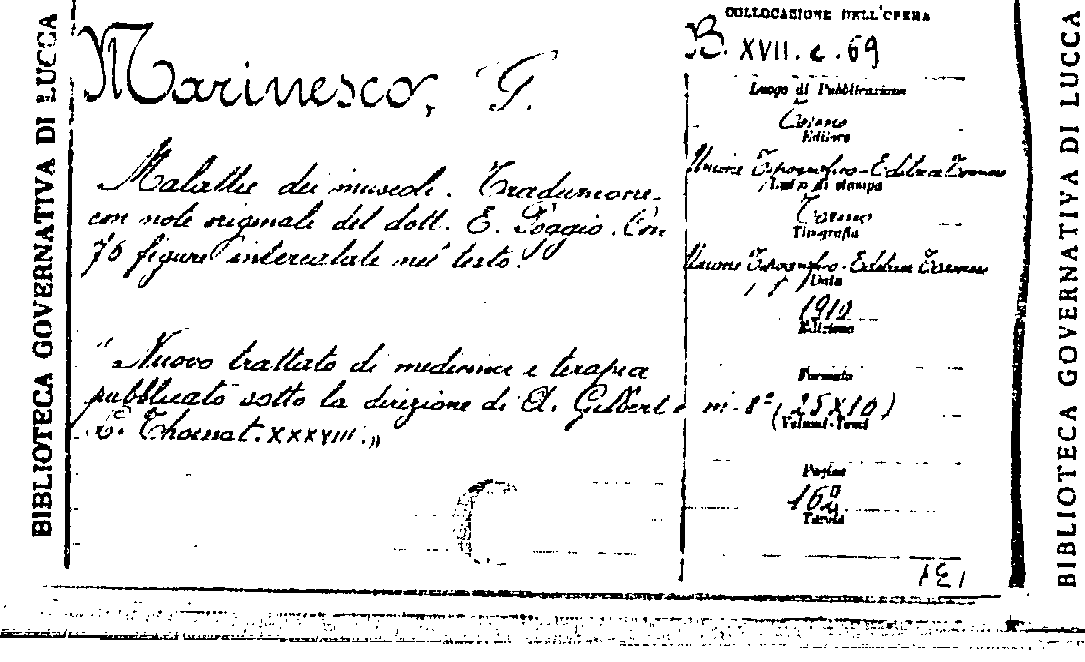 BIBLIOTECA GOVERNATIVA DI LUCCA
Marinesco, G.
Malattie dei muscoli. Traduzione
con note originali del dott. E. Poggio. Con
76 figure intercalate nel testo.
"Nuovo trattato di medicina e terapia
pubblicato sotto la direzione di A. Gilbert e
L. Thoinot. XXXVIII."
COLLOCAZIONE DELL'OPERA
B. XVII. c. 69
Luogo di Pubblicazione
Torino
Editore
Unione Tipografico-Editrice Torinese
Luogo di stampa
Torino
Tipografia
Unione Tipografico-Editrice Torinese
Data
1910
Edizione
Formato
in-8° (25X10)
(Volumi-Tomi)
Pagine
Tavole
BIBLIOTECA GOVERNATIVA DI LUCCA